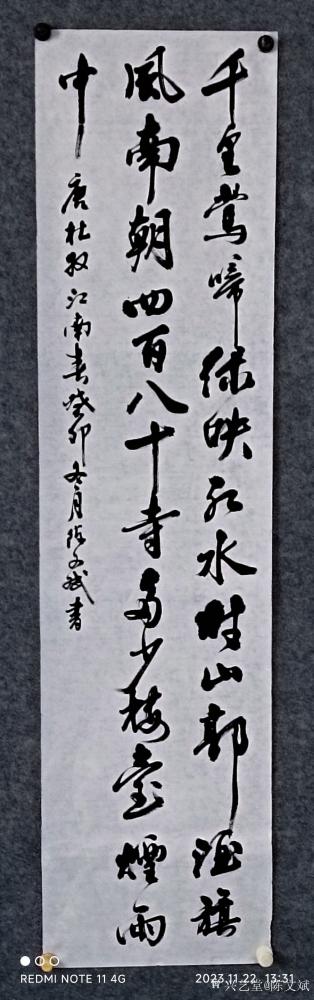 千里莺啼绿映红水村山郭酒旗
風南朝四百八十寺多少楼臺煙雨
中
唐杜牧江南春癸卯冬月陈文斌書
REDMI NOTE 11 4G
2023.11.22 13:31
兴艺堂@陈文斌